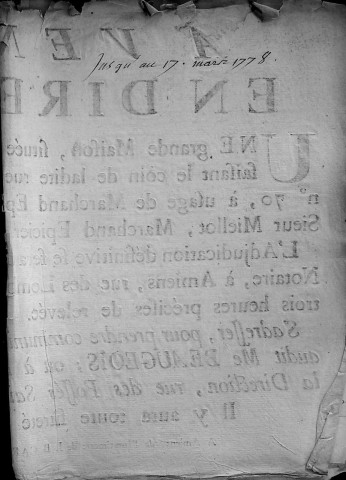 A VEN
Jusqu'au 17. mars 1778.
EN DIRE
UNE grande Maison, située
faisant le coin de ladite rue
n° 70, à usage de Marchand Ep
Sieur Miellot, Marchand Epicier
L'Adjudication définitive se fera
Notaire, à Amiens, rue des
trois heures précises de relevée.
S'adresser, pour prendre communi
audit Me BEAUGEOIS; ou à
la Direction, rue des Fossés Sai
Il y aura toute sûreté